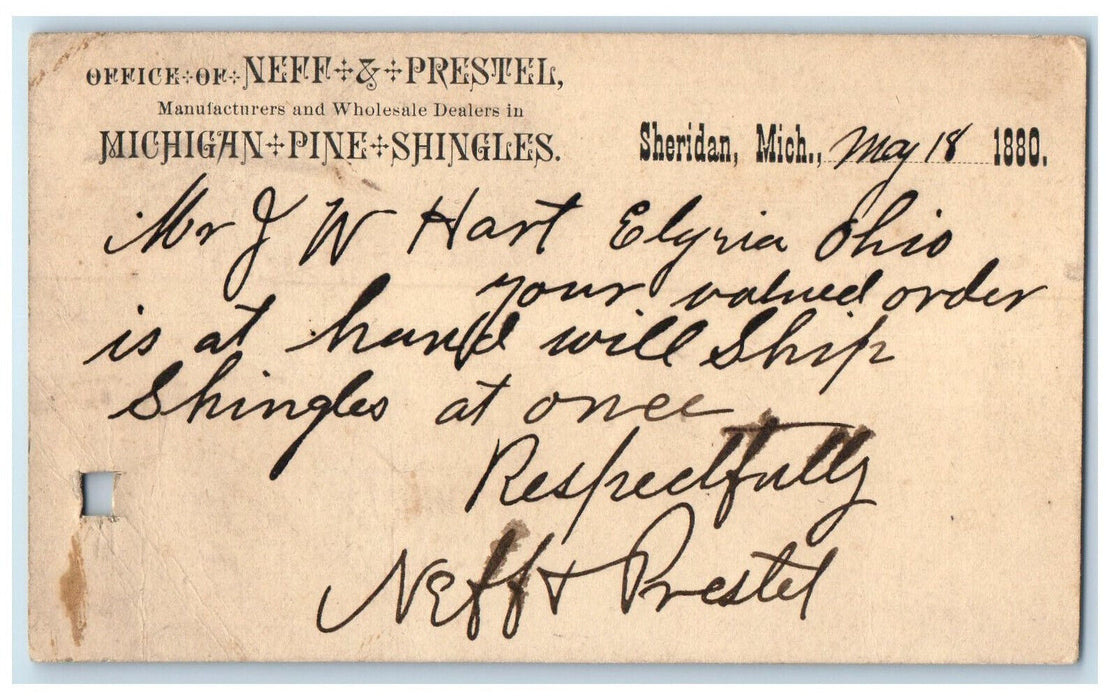 OFFICE OF NEFF & PRESTEL,
Manufacturers and Wholesale Dealers in
MICHIGAN PINE SHINGLES.
Sheridan, Mich., May 18 1880.
Mr J W Hart Elyria Ohio
your valued order
is at hand will Ship
Shingles at once
Respectfully
Neff & Prestel